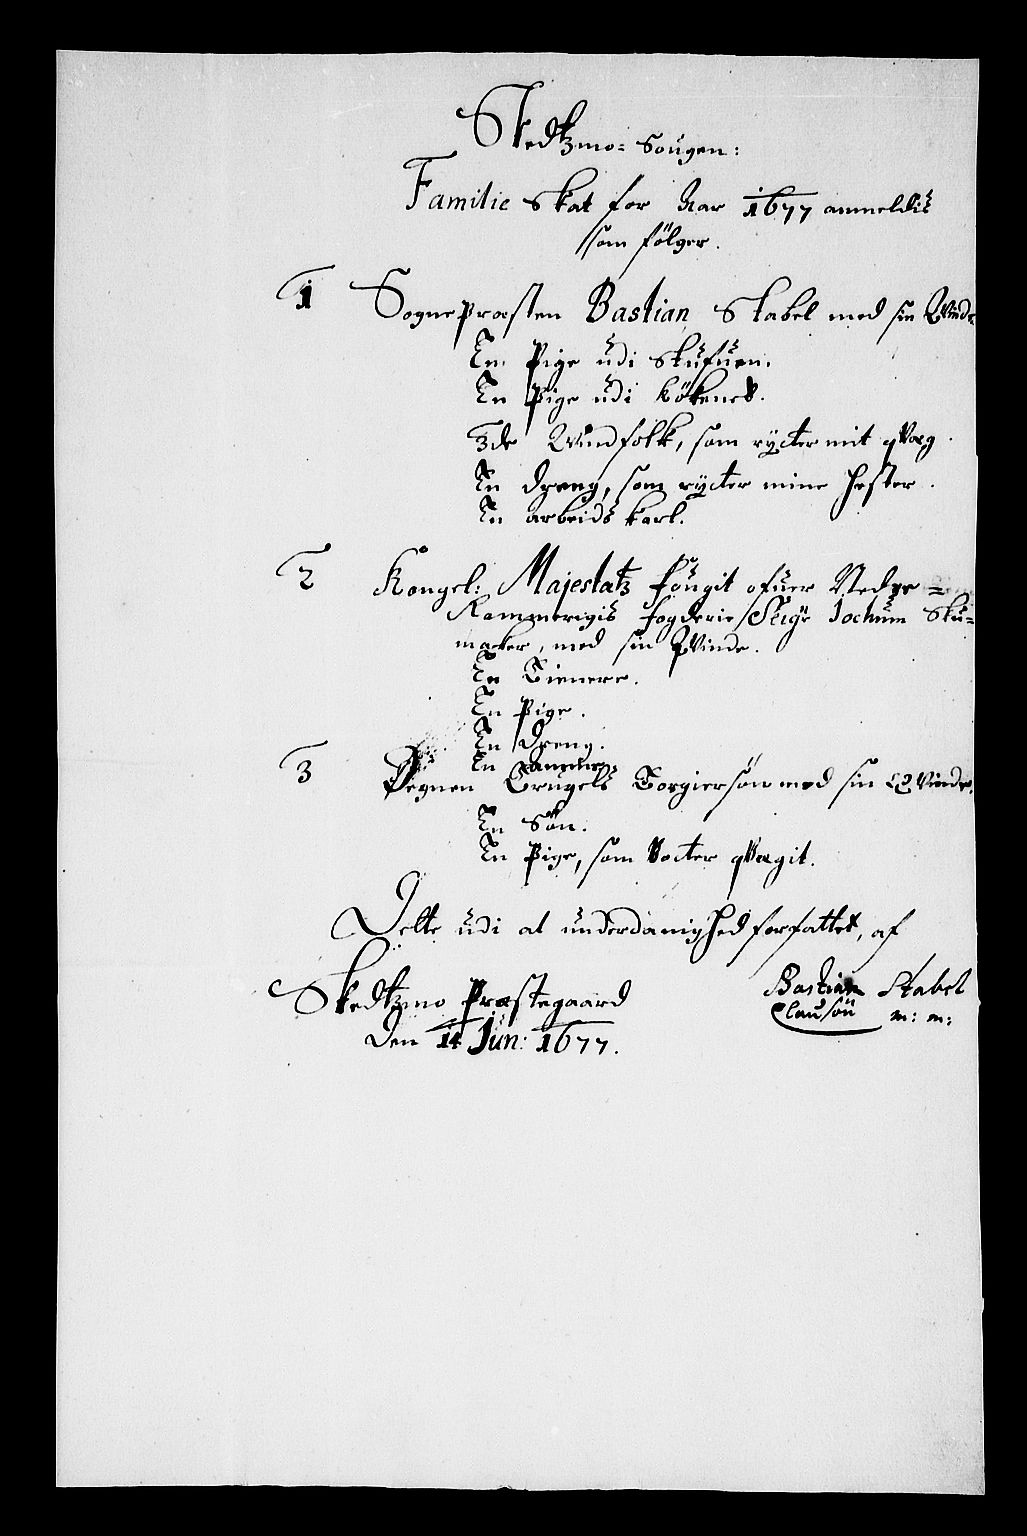 Skedtzmo= Sougen:
Familie Skat for Aar 1677 anmeldis
som følger.
1 Sognepræsten Bastian Stabel med sin Qvinde
En Pige udi Stufuen.
En Pige udi Kökenet.
3de Qvindfolk, som rycter mit qvæg.
En dreng, som rycter mine hester.
En arbeids karl.
2 Kongel: Majestatz fougit ofuer Nedre=
Rommerigis fogderie Seigr Jochum Sku=
macker, med sin Qvinde.
En Tienere.
En Pige.
En dreng.
En amme.
3 Degnen Trugels Torgiersön med sin Qvinde.
En Sön.
En Pige, som vocter qvægit.
Dette udi al underdanighed forfattet, af
Skedtzmo Præstegaard
den 14 Jun: 1677.
Bastian Stabel
Clausön m: m: